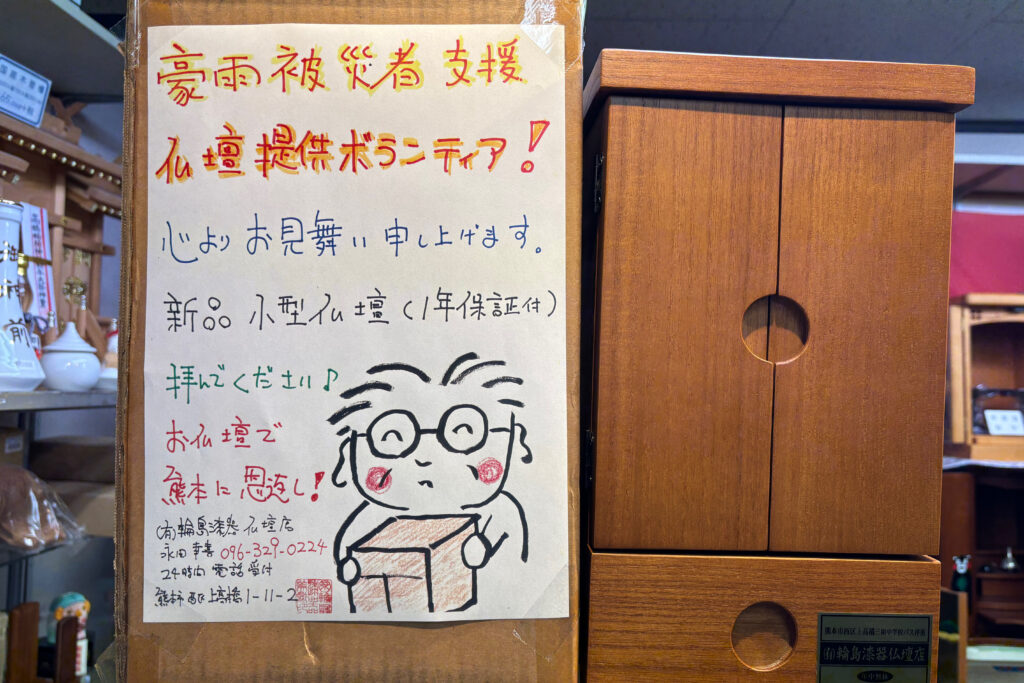 豪雨被災者支援
仏壇提供ボランティア!
心よりお見舞い申し上げます。
新品 小型仏壇(1年保証付)
拝んでください♪
お仏壇で
熊本に恩返し!
(有)輪島漆器仏壇店
永田幸喜 096-329-0224
24時間 電話受付
熊本市西区上高橋1-11-2
熊本市西区上高橋三和中学校バス停前
(有)輪島漆器仏壇店
国産木
前